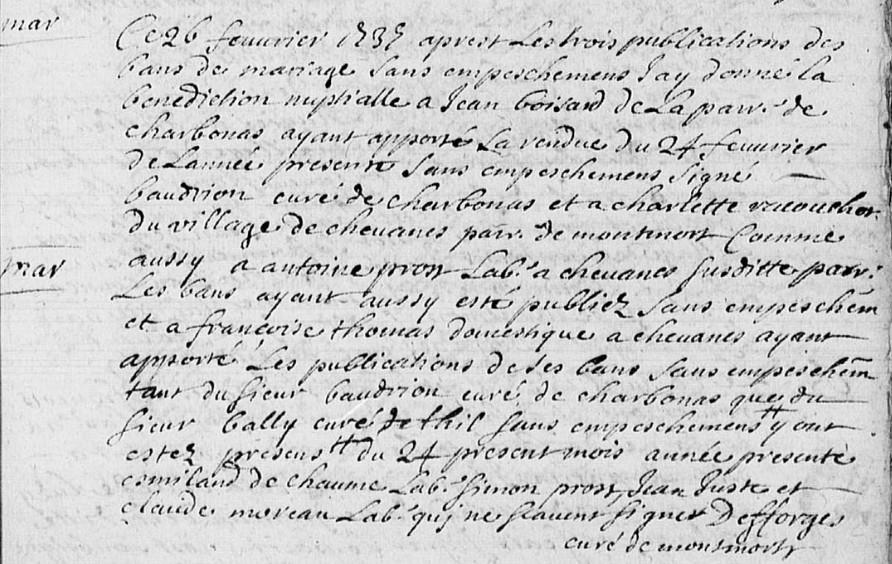 mar
Ce 26 feuurier 1737 aprest Les trois publications des
bans de mariage sans empeschemens Jay donné la
benediction nuptialle a Jean boisard de La parr. de
charbonas ayant apporté La rendue du 24 feuurier
de Lannée presente sans empeschemens signé
baudrion curé de charbonas et a charlette
du village de cheuanes parr. de montmort Comme
mar
aussy a antoine prost Lab.r a cheuanes susditte parr.
Les bans ayant aussy esté publiez sans empeschem
et a francoise thomas domestique a cheuanes ayant
apporté Les publications de ses bans sans empeschem
tant du sieur baudrion curé de charbonas que du
sieur bally curé de thil sans empeschemens # y ont
estez presens # du 24 present mois année presente
esmiland de chaume Lab.r simon prost Jean Juste et
claude moreau Lab.r qui ne scauent signer Defforges
curé de montmort